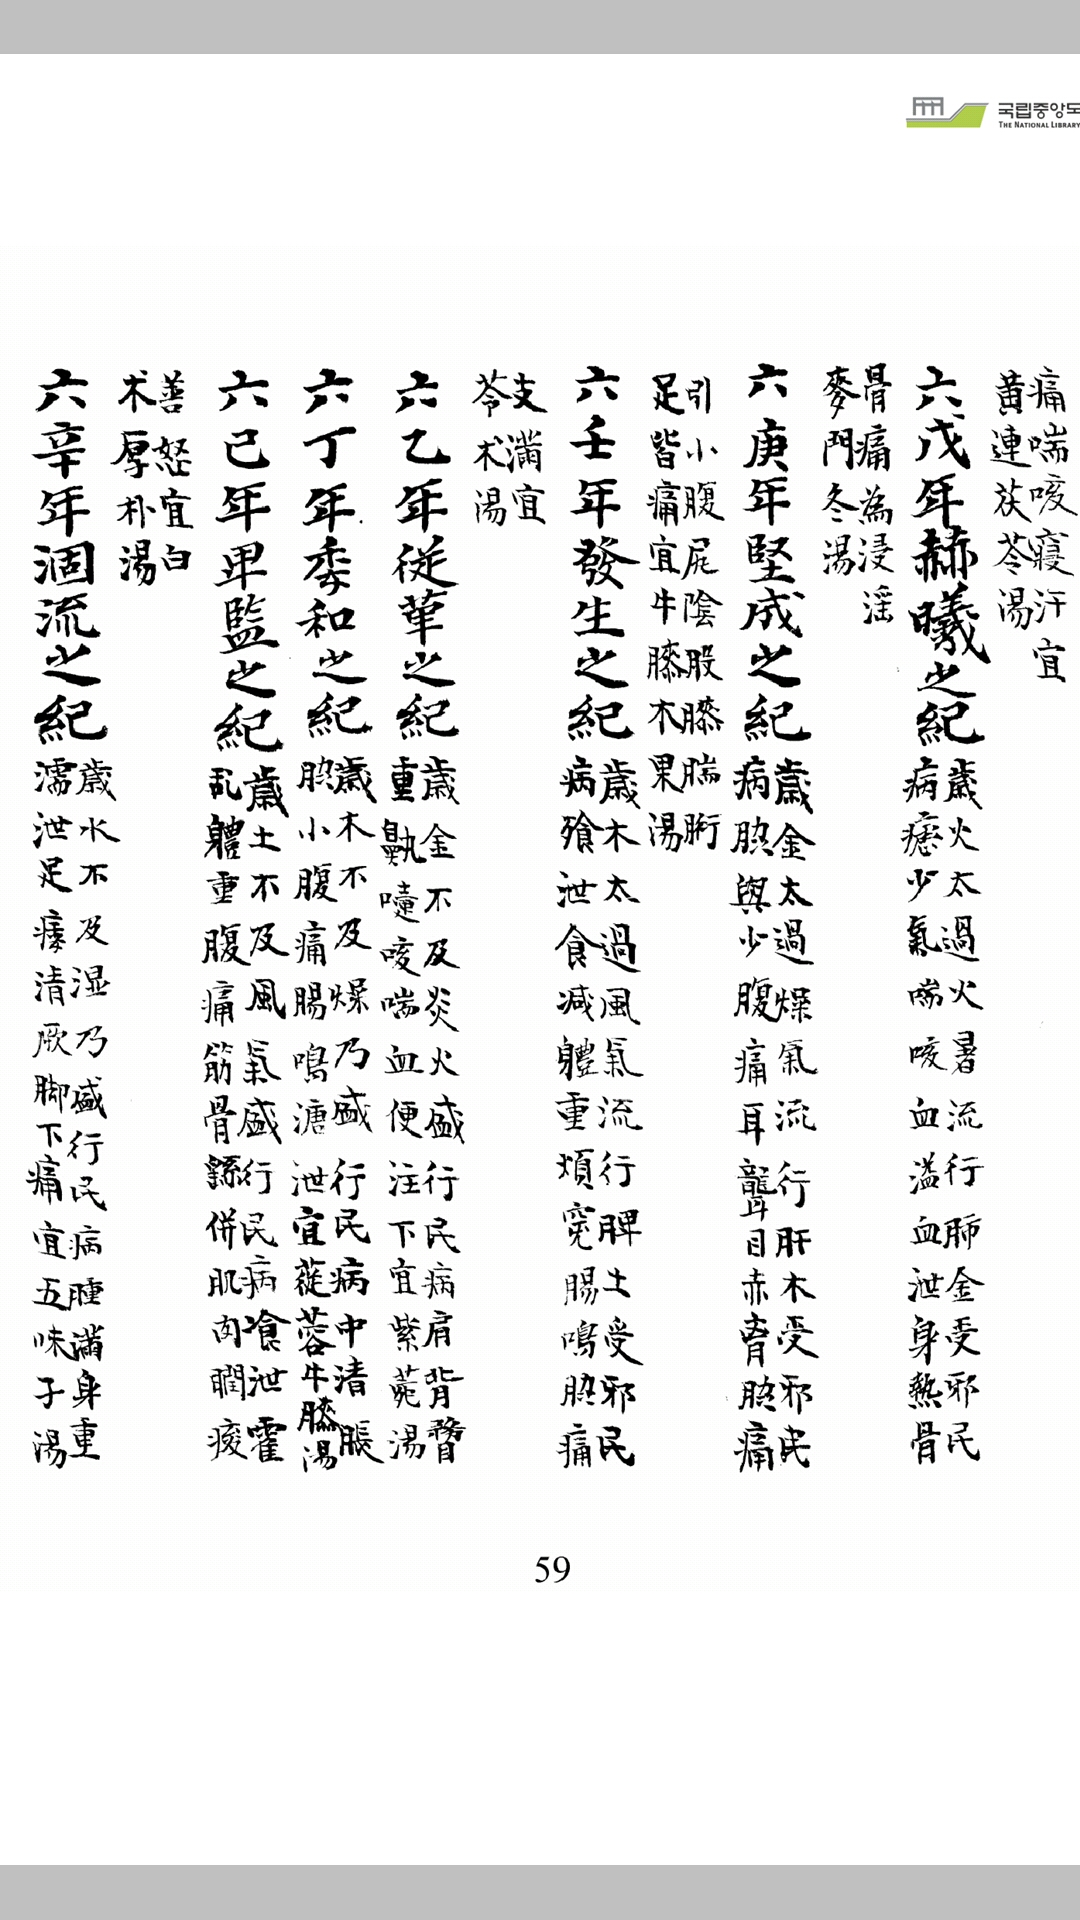 국립중앙도
THE NATIONAL LIBRARY
痛喘咳寢汗宜
黄連茯苓湯
六戊年赫曦之紀
歲火太過火暑流行肺金受邪民
病瘧少氣喘咳血溢血泄身熱骨
骨痛為浸淫
麥門冬湯
六庚年堅成之紀
歲金太過燥氣流行肝木受邪民
病脇與少腹痛耳聾目赤脅脇痛
引小腹尻陰股膝腨䯒
足皆痛宜牛膝木果湯
六壬年發生之紀
歲木太過風氣流行脾土受邪民
病飱泄食减體重煩寃腸鳴脇痛
支滿宜
苓术湯
六乙年從革之紀
歲金不及炎火盛行民病肩背瞀
重鼽嚏咳喘血便注下宜紫菀湯
六丁年委和之紀
歲木不及燥乃盛行民病中清脹
脇小腹痛腸鳴溏泄宜蓯蓉牛膝湯
六己年卑監之紀
歲土不及風氣盛行民病飡泄霍
乱體重腹痛筋骨繇併肌肉瞤痠
善怒宜白
术厚朴湯
六辛年涸流之紀
歲水不及湿乃盛行民病腫滿身重
濡泄足痿清厥脚下痛宜五味子湯
59